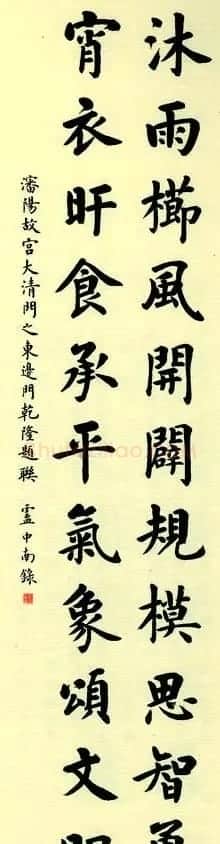 沐雨櫛風開闢規模思智
宵衣旰食承平氣象頌文
瀋陽故宮大清門之東邊門乾隆題聯 盧中南錄